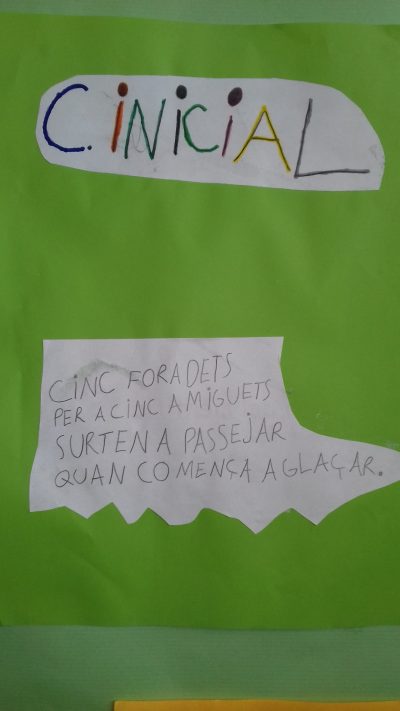 C. INICIAL
CINC FORADETS
PER A CINC AMIGUETS
SURTEN A PASSEJAR
QUAN COMENÇA A GLAÇAR.